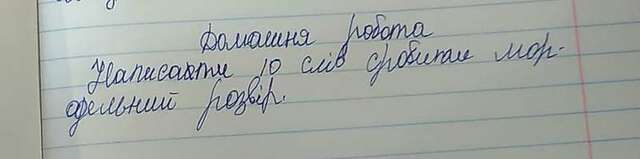 Домашня робота
Написакти 10 слів зробити мор-
фельний розбір.